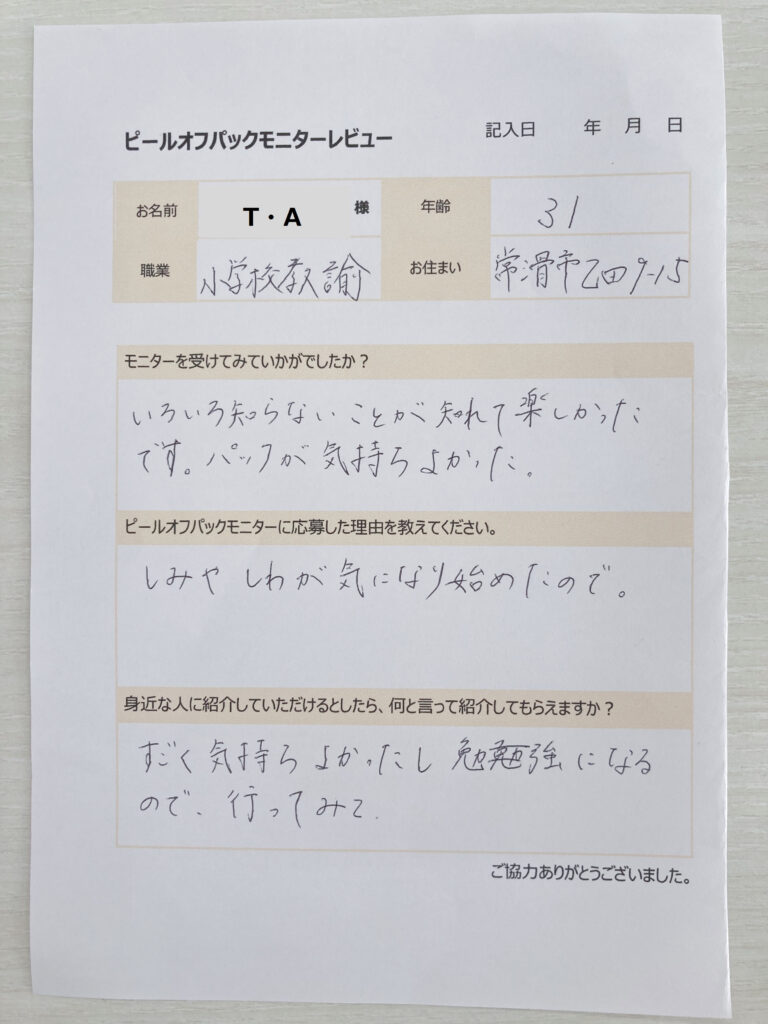 ピールオフパックモニターレビュー
記入日　年　月　日
お名前 T・A 様 年齢 31
職業 小学校教諭 お住まい 常滑市乙田9-15
モニターを受けてみていかがでしたか？
いろいろ知らないことが知れて楽しかった
です。パックが気持ちよかった。
ピールオフパックモニターに応募した理由を教えてください。
しみやしわが気になり始めたので。
身近な人に紹介していただけるとしたら、何と言って紹介してもらえますか？
すごく気持ちよかったし勉強になる
ので、行ってみて。
ご協力ありがとうございました。